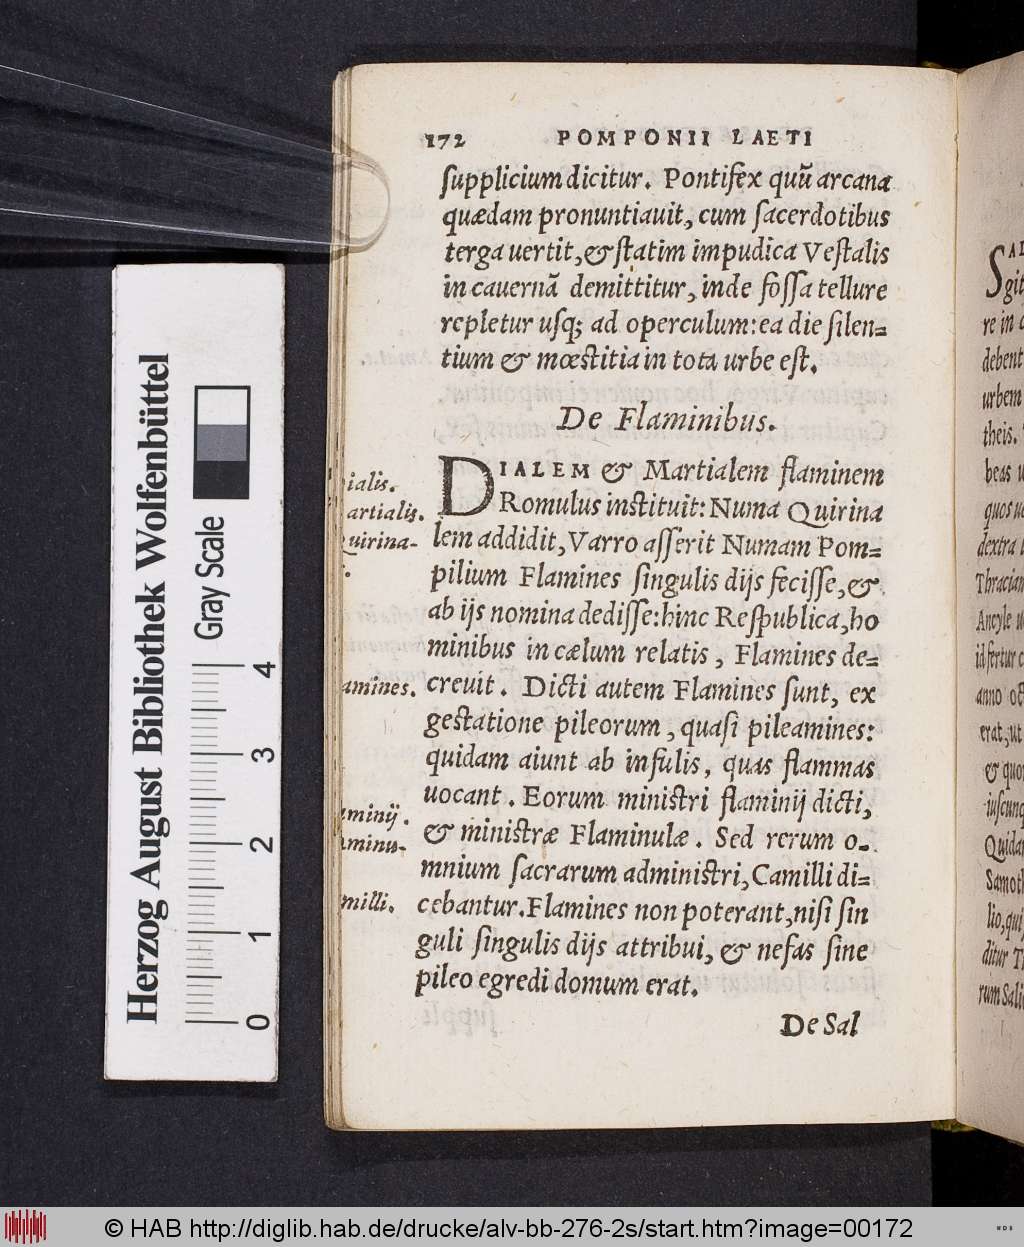 172 POMPONII LAETI
ſupplicium dicitur. Pontifex quū arcana
quædam pronuntiauit, cum ſacerdotibus
terga uertit, & ſtatim impudica Veſtalis
in cauernā demittitur, inde foſſa tellure
repletur uſq; ad operculum: ea die ſilen=
tium & mœſtitia in tota urbe eſt.
De Flaminibus.
DIALEM & Martialem flaminem
Romulus inſtituit: Numa Quirina
lem addidit, Varro aſſerit Numam Pom=
pilium Flamines ſingulis dijs feciſſe, &
ab ijs nomina dediſſe: hinc Reſpublica, ho
minibus in cælum relatis, Flamines de=
creuit. Dicti autem Flamines ſunt, ex
geſtatione pileorum, quaſi pileamines:
quidam aiunt ab infulis, quas flammas
uocant. Eorum miniſtri flaminij dicti,
& miniſtræ Flaminulæ. Sed rerum o-
mnium ſacrarum adminiſtri, Camilli di=
cebantur. Flamines non poterant, niſi ſin
guli ſingulis dijs attribui, & nefas ſine
pileo egredi domum erat.
De Sal
ialis.
artialis.
uirina-
amines.
minij.
minu-
milli.
SAL
git
re in
debent
urbem
theis.
beas
quos
dextra
Thracian
Ancyle
id fertur
anno
erat, ut
& quo
iuſcunq
Quida
Samoth
lio, qui
ditur T
rum Sali
Herzog August Bibliothek Wolfenbüttel
Gray Scale
4
3
2
1
0
© HAB http://diglib.hab.de/drucke/alv-bb-276-2s/start.htm?image=00172
WDB